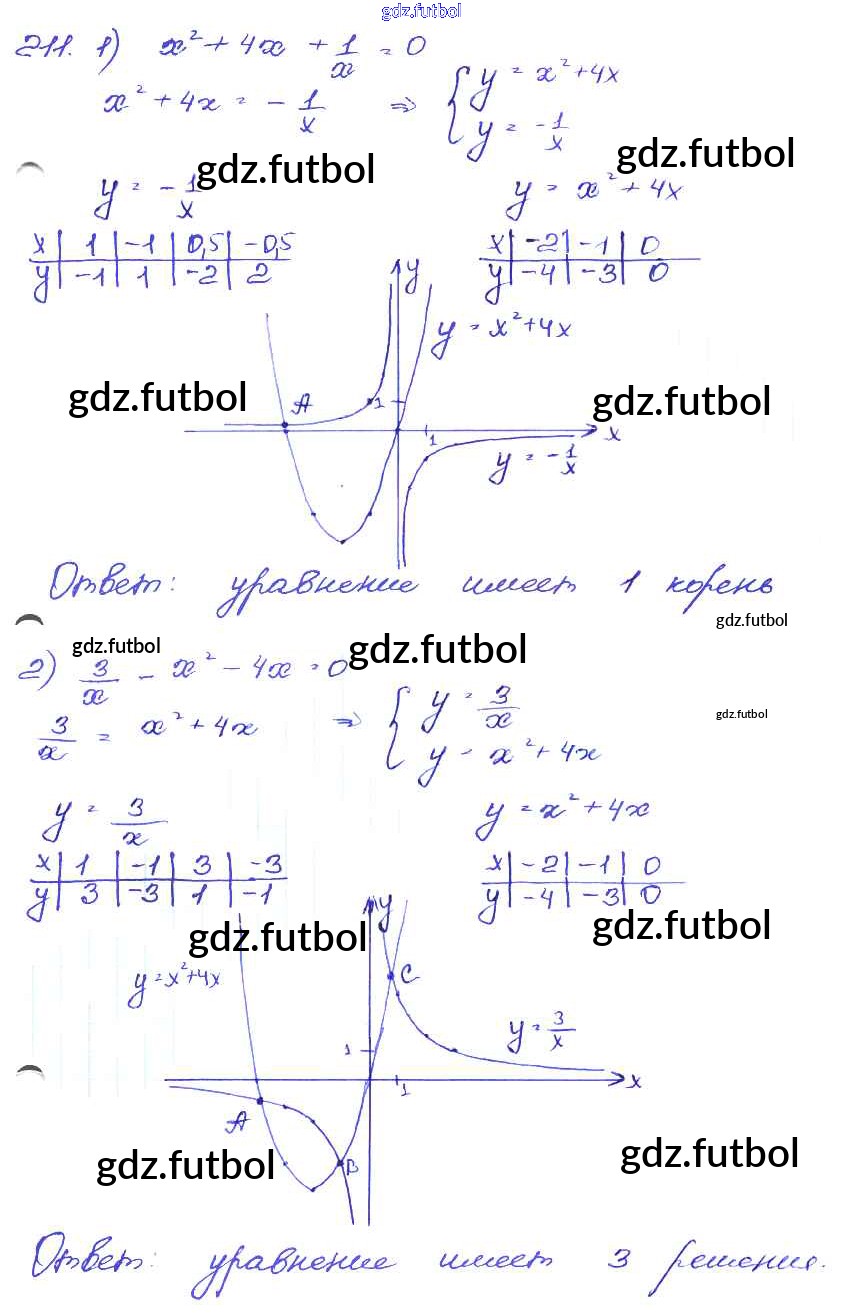 gdz.futbol
211. 1) x² + 4x + 1/x = 0
x² + 4x = - 1/x ⇒ { y = x² + 4x
y = - 1/x
gdz.futbol gdz.futbol
y = - 1/x y = x² + 4x
x | 1 | -1 | 0,5 | -0,5 x | -2 | -1 | 0
y | -1 | 1 | -2 | 2 y | -4 | -3 | 0
y
y = x² + 4x
gdz.futbol A 1 gdz.futbol
1 x
y = - 1/x
Ответ: уравнение имеет 1 корень
gdz.futbol
gdz.futbol gdz.futbol
2) 3/x - x² - 4x = 0
gdz.futbol
3/x = x² + 4x ⇒ { y = 3/x
y = x² + 4x
y = 3/x y = x² + 4x
x | 1 | -1 | 3 | -3 x | -2 | -1 | 0
y | 3 | -3 | 1 | -1 y | -4 | -3 | 0
y
gdz.futbol gdz.futbol
y = x² + 4x C
y = 3/x
1
1 x
A
gdz.futbol B gdz.futbol
Ответ: уравнение имеет 3 решения.